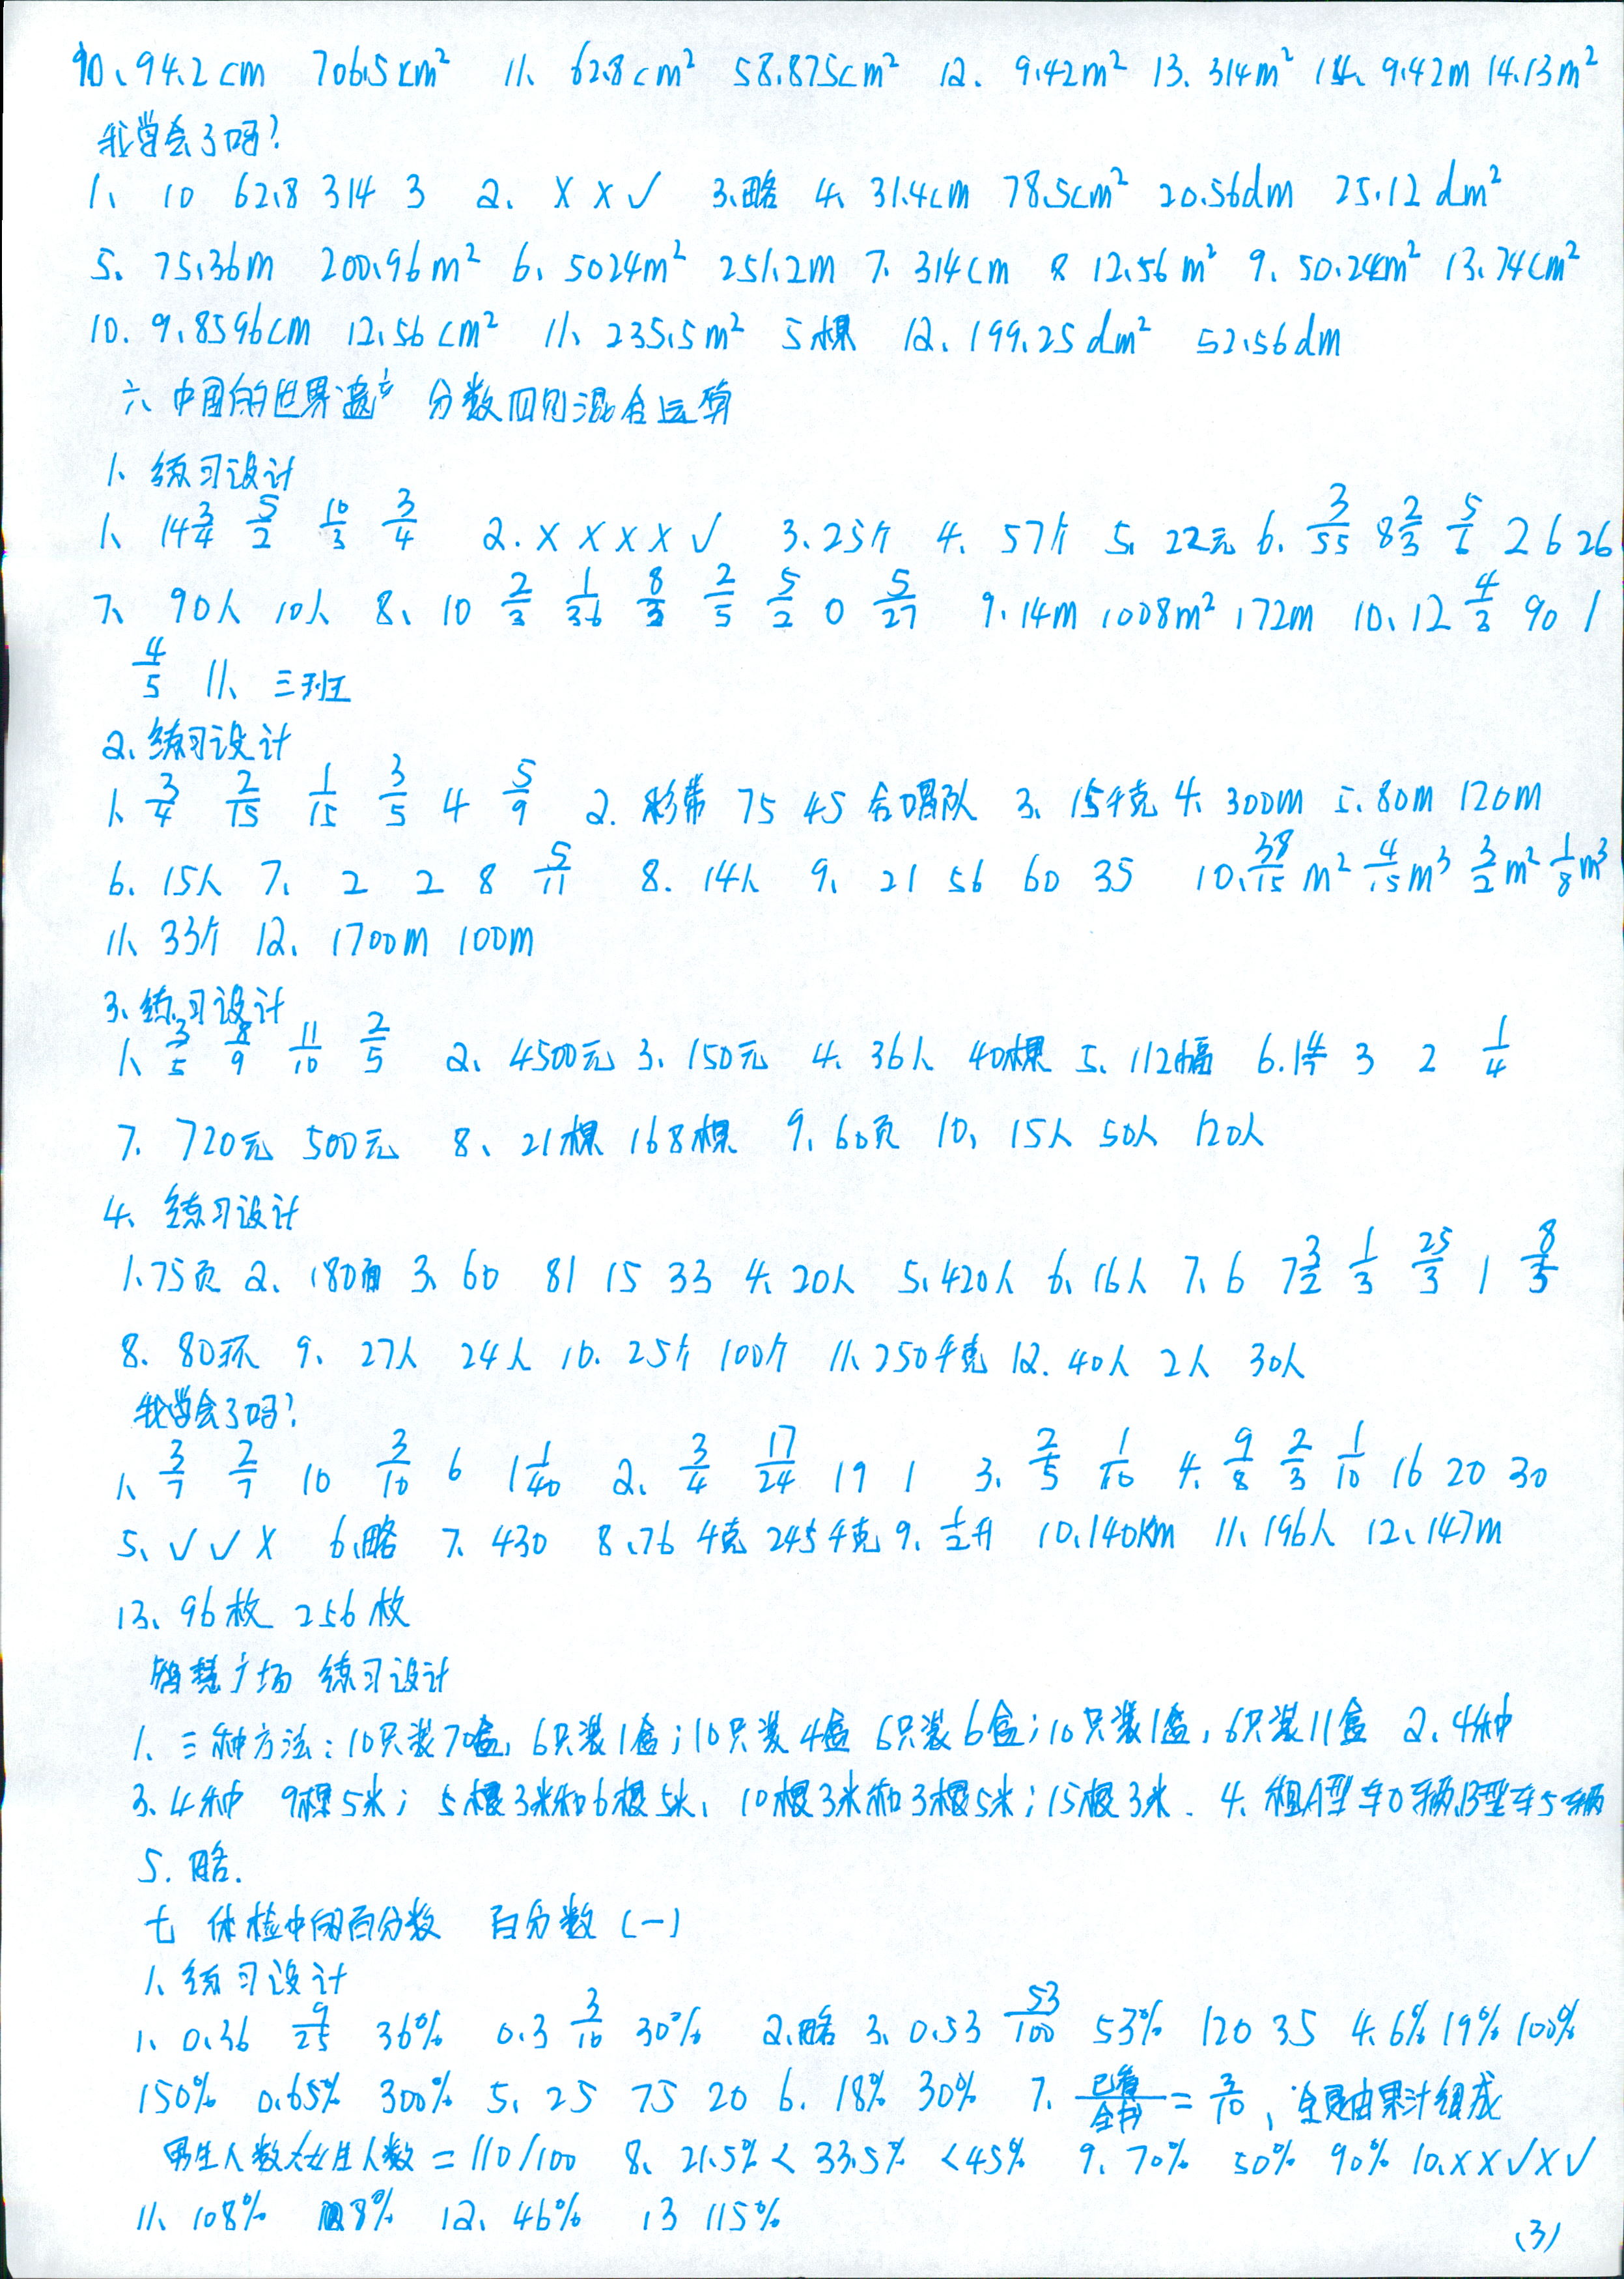 10、94.2cm 706.5cm² 11、62.8cm² 58.875cm² 12、9.42m² 13、314m² 14、9.42m 14.13m²
我学会了吗?
1、10 62.8 314 3 2、× × √ 3、略 4、31.4cm 78.5cm² 20.56dm 25.12dm²
5、75.36m 200.96m² 6、5024m² 251.2m 7、314cm 8 12.56m² 9、50.24cm² 13.74cm²
10、9.8596cm 12.56cm² 11、235.5m² 5棵 12、199.25dm² 52.56dm
六、中国的世界遗产 分数四则混合运算
1、练习设计
1、14 3/4 5/2 10/3 3/4 2.× × × × √ 3.25个 4、57个 5、22元 6、3/55 8 2/3 5/6 2 6 26
7、90人 10人 8、10 2/3 1/36 8/3 2/5 5/2 0 5/27 9、14m 1008m² 172m 10、12 4/3 90 1
4/5 11、三班
2、练习设计
1、3/4 2/15 1/15 3/5 4 5/9 2、彩带 75 45 合唱队 3、15千克 4、300m 5、80m 120m
6、15人 7、2 2 8 5/11 8、14人 9、21 56 60 35 10、38/15 m² 4/15 m³ 3/2 m² 1/8 m³
11、33个 12、1700m 100m
3、练习设计
1、3/5 8/9 11/10 2/5 2、4500元 3、150元 4、36人 40棵 5、112幅 6. 3 2 1/4
7、720元 500元 8、21棵 168棵 9、60页 10、15人 50人 120人
4、练习设计
1、75页 2、180面 3、60 81 15 33 4、20人 5、420人 6、16人 7、6 7 3/2 1/3 25/3 1 8/5
8、80环 9、27人 24人 10、25个 100个 11、250千克 12、40人 2人 30人
我学会了吗?
1、3/7 2/7 10 3/10 6 1 1/40 2、3/4 17/24 19 1 3、2/5 1/10 4、9/8 2/3 1/10 16 20 30
5、√ √ × 6、略 7、430 8、76千克 245千克 9、1/2升 10、140km 11、196人 12、147m
13、96枚 256枚
智慧广场 练习设计
1、三种方法:10只装7盒,6只装1盒;10只装4盒 6只装6盒;10只装1盒,6只装11盒 2、4种
3、4种 9根5米;5根3米和6根5米、10根3米和3根5米;15根3米. 4、租A型车0辆,B型车5辆
5、略.
七 体检中的百分数 百分数(一)
1、练习设计
1、0.36 9/25 36% 0.3 3/10 30% 2、略 3、0.53 53/100 53% 120 35 4、6% 19% 100%
150% 0.65% 300% 5、25 75 20 6、18% 30% 7、已看/全书=3/10、全是由果汁组成
男生人数/女生人数=110/100 8、21.5%<33.5%<45% 9、70% 50% 90% 10、× × √ × √
11、108% 8% 12、46% 13 115%
(3)